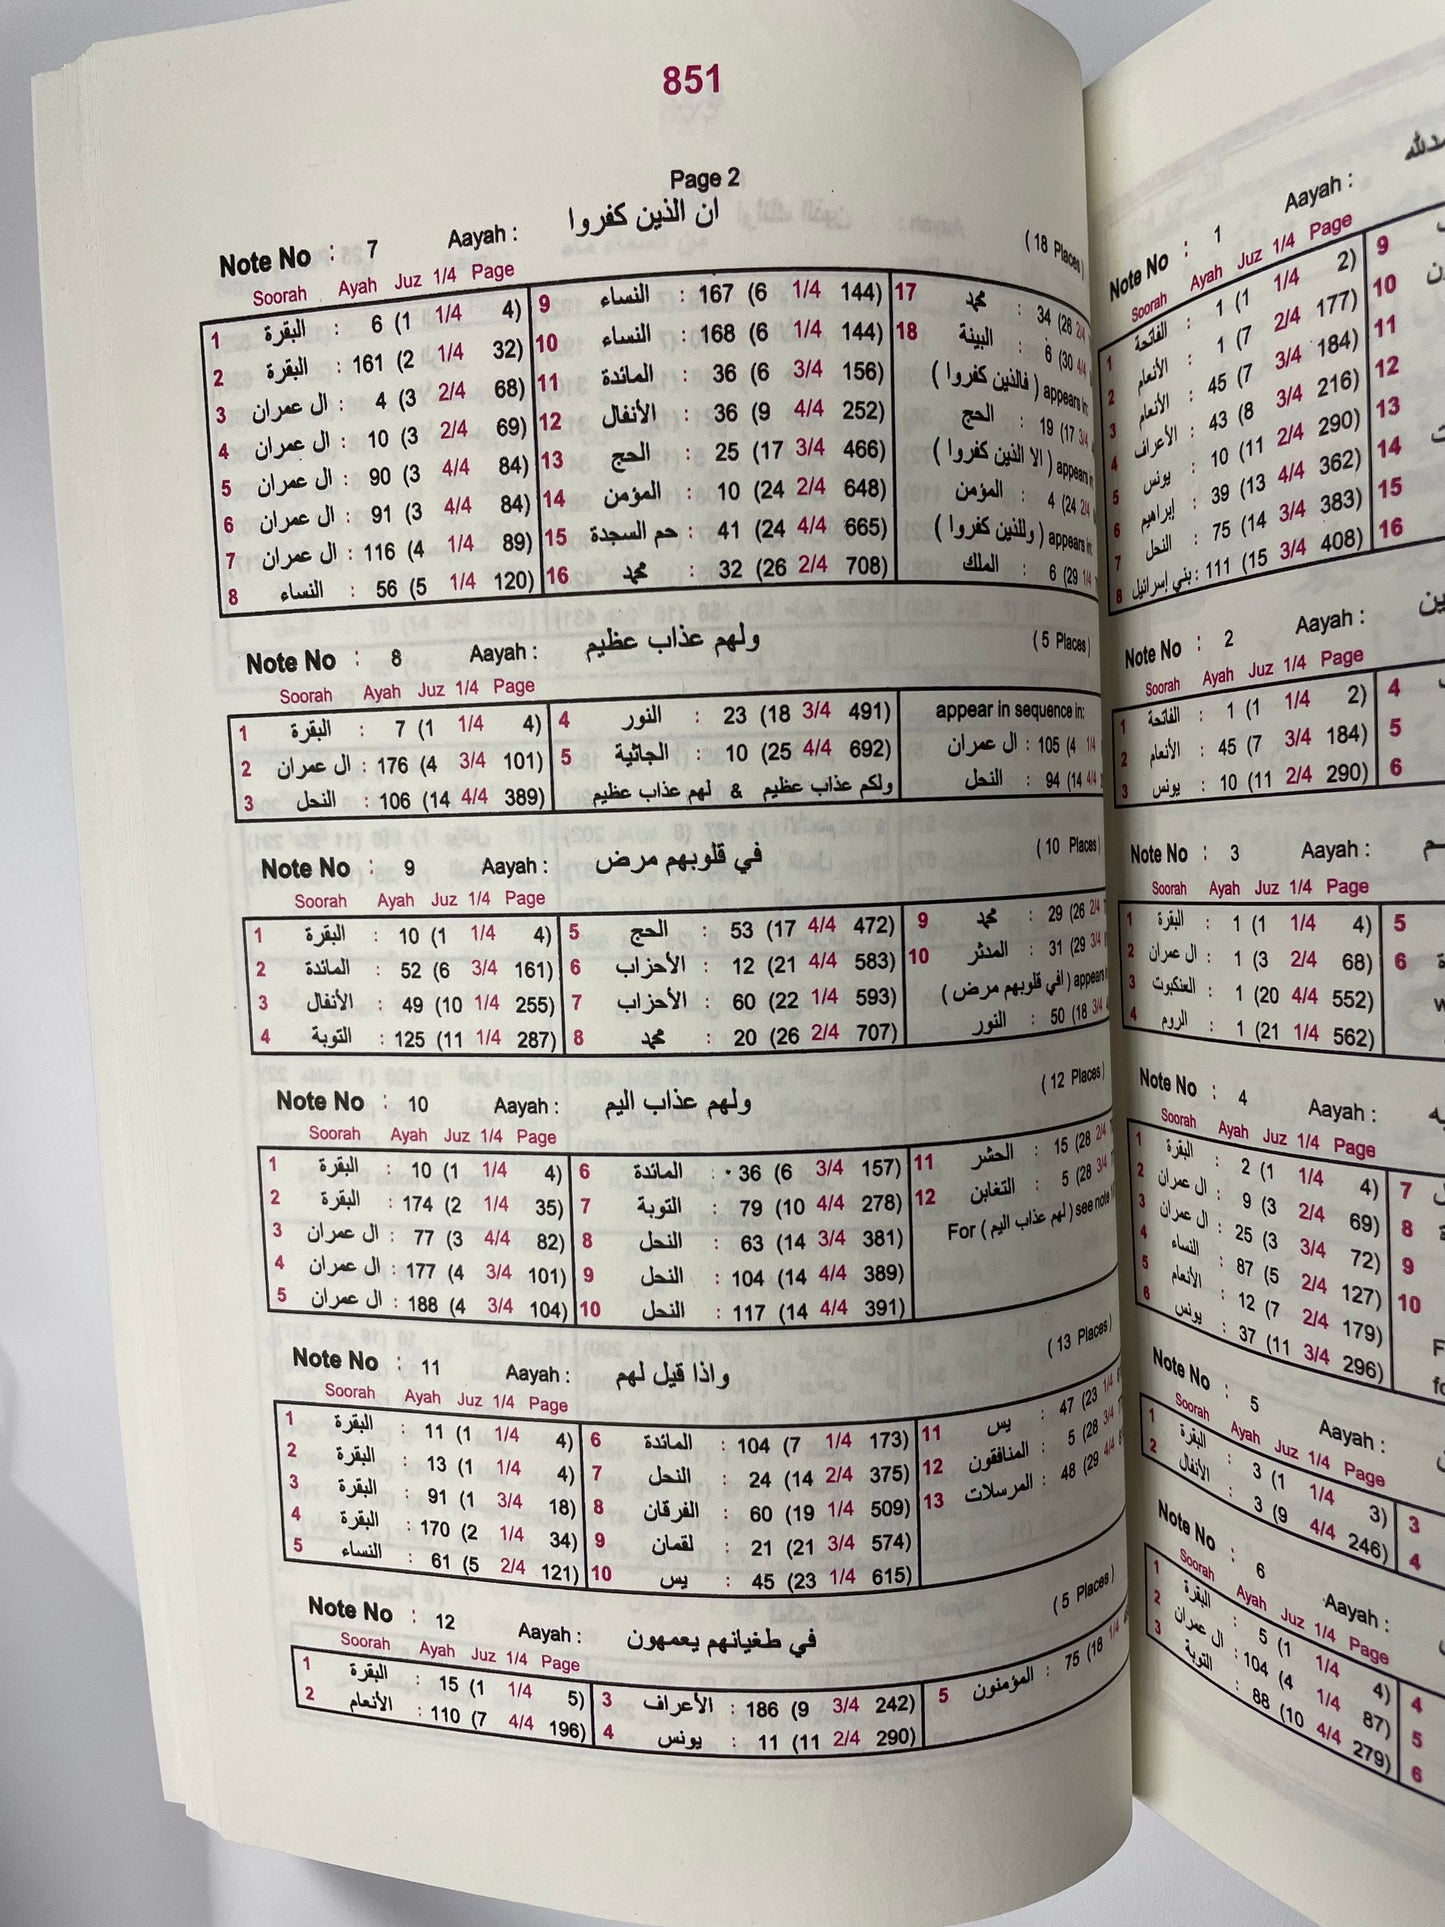 851
Page 2
Note No : 7 Aayah : ان الذين كفروا ( 18 Places )
Soorah Ayah Juz 1/4 Page
1 البقرة : 6 (1 1/4 4)
2 البقرة : 161 (2 1/4 32)
3 ال عمران : 4 (3 2/4 68)
4 ال عمران : 10 (3 2/4 69)
5 ال عمران : 90 (3 4/4 84)
6 ال عمران : 91 (3 4/4 84)
7 ال عمران : 116 (4 1/4 89)
8 النساء : 56 (5 1/4 120)
9 النساء : 167 (6 1/4 144)
10 النساء : 168 (6 1/4 144)
11 المائدة : 36 (6 3/4 156)
12 الأنفال : 36 (9 4/4 252)
13 الحج : 25 (17 3/4 466)
14 المؤمن : 10 (24 2/4 648)
15 حم السجدة : 41 (24 4/4 665)
16 محمد : 32 (26 2/4 708)
17 محمد : 34 (26 2/4
18 البينة : 6 (30 4/4
( فالذين كفروا ) appears in:
الحج : 19 (17 3/4
( الا الذين كفروا ) appears in:
المؤمن : 4 (24 2/4
( وللذين كفروا ) appears in:
الملك : 6 (29 1/4
Note No : 8 Aayah : ولهم عذاب عظيم ( 5 Places )
Soorah Ayah Juz 1/4 Page
1 البقرة : 7 (1 1/4 4)
2 ال عمران : 176 (4 3/4 101)
3 النحل : 106 (14 4/4 389)
4 النور : 23 (18 3/4 491)
5 الجاثية : 10 (25 4/4 692)
ولكم عذاب عظيم & لهم عذاب عظيم
appear in sequence in:
ال عمران : 105 (4 1/4
النحل : 94 (14 4/4
Note No : 9 Aayah : في قلوبهم مرض ( 10 Places )
Soorah Ayah Juz 1/4 Page
1 البقرة : 10 (1 1/4 4)
2 المائدة : 52 (6 3/4 161)
3 الأنفال : 49 (10 1/4 255)
4 التوبة : 125 (11 1/4 287)
5 الحج : 53 (17 4/4 472)
6 الأحزاب : 12 (21 4/4 583)
7 الأحزاب : 60 (22 1/4 593)
8 محمد : 20 (26 2/4 707)
9 محمد : 29 (26 2/4
10 المدثر : 31 (29 3/4
( افي قلوبهم مرض ) appears
النور : 50 (18 3/4
Note No : 10 Aayah : ولهم عذاب اليم ( 12 Places )
Soorah Ayah Juz 1/4 Page
1 البقرة : 10 (1 1/4 4)
2 البقرة : 174 (2 1/4 35)
3 ال عمران : 77 (3 4/4 82)
4 ال عمران : 177 (4 3/4 101)
5 ال عمران : 188 (4 3/4 104)
6 المائدة : 36 (6 3/4 157)
7 التوبة : 79 (10 4/4 278)
8 النحل : 63 (14 3/4 381)
9 النحل : 104 (14 4/4 389)
10 النحل : 117 (14 4/4 391)
11 الحشر : 15 (28 2/4
12 التغابن : 5 (28 3/4
For ( لهم عذاب اليم ) see note
Note No : 11 Aayah : واذا قيل لهم ( 13 Places )
Soorah Ayah Juz 1/4 Page
1 البقرة : 11 (1 1/4 4)
2 البقرة : 13 (1 1/4 4)
3 البقرة : 91 (1 3/4 18)
4 البقرة : 170 (2 1/4 34)
5 النساء : 61 (5 2/4 121)
6 المائدة : 104 (7 1/4 173)
7 النحل : 24 (14 2/4 375)
8 الفرقان : 60 (19 1/4 509)
9 لقمان : 21 (21 3/4 574)
10 يس : 45 (23 1/4 615)
11 يس : 47 (23 1/4
12 المنافقون : 5 (28 3/4
13 المرسلات : 48 (29 4/4
Note No : 12 Aayah : في طغيانهم يعمهون ( 5 Places )
Soorah Ayah Juz 1/4 Page
1 البقرة : 15 (1 1/4 5)
2 الأنعام : 110 (7 4/4 196)
3 الأعراف : 186 (9 3/4 242)
4 يونس : 11 (11 2/4 290)
5 المؤمنون : 75 (18 1/4
Note No : 1 Aayah :
Soorah Ayah Juz 1/4 Page
1 الفاتحة : 1 (1 1/4 2)
2 الأنعام : 1 (7 2/4 177)
3 الأنعام : 45 (7 3/4 184)
4 الأعراف : 43 (8 3/4 216)
5 يونس : 10 (11 2/4 290)
6 إبراهيم : 39 (13 4/4 362)
7 النحل : 75 (14 3/4 383)
8 بني إسرائيل : 111 (15 3/4 408)
9
10
11
12
13
14
15
16
Note No : 2 Aayah :
Soorah Ayah Juz 1/4 Page
1 الفاتحة : 1 (1 1/4 2)
2 الأنعام : 45 (7 3/4 184)
3 يونس : 10 (11 2/4 290)
4
5
6
Note No : 3 Aayah :
Soorah Ayah Juz 1/4 Page
1 البقرة : 1 (1 1/4 4)
2 ال عمران : 1 (3 2/4 68)
3 العنكبوت : 1 (20 4/4 552)
4 الروم : 1 (21 1/4 562)
5
6
Note No : 4 Aayah :
Soorah Ayah Juz 1/4 Page
1 البقرة : 2 (1 1/4 4)
2 ال عمران : 9 (3 2/4 69)
3 ال عمران : 25 (3 3/4 72)
4 النساء : 87 (5 2/4 127)
5 الأنعام : 12 (7 2/4 179)
6 يونس : 37 (11 3/4 296)
7
8
9
10
Note No : 5 Aayah :
Soorah Ayah Juz 1/4 Page
1 البقرة : 3 (1 1/4 3)
2 الأنفال : 3 (9 4/4 246)
3
4
Note No : 6 Aayah :
Soorah Ayah Juz 1/4 Page
1 البقرة : 5 (1 1/4 4)
2 ال عمران : 104 (4 1/4 87)
3 التوبة : 88 (10 4/4 279)
4
5
6